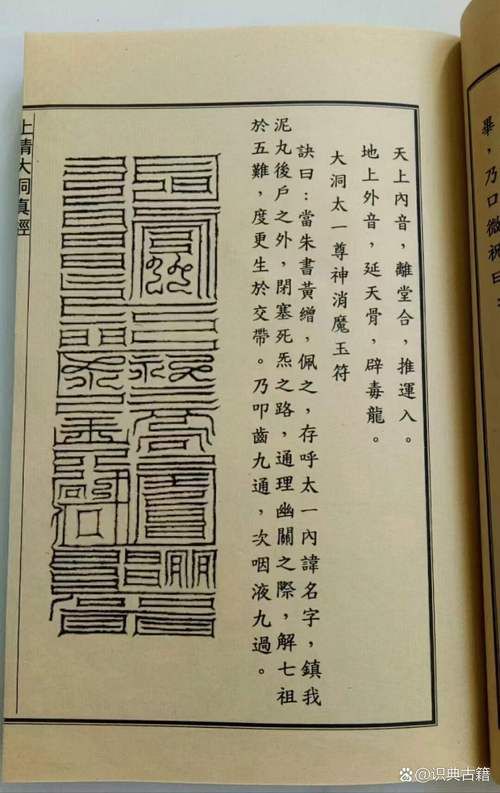 畢，乃口微祝曰
天上內音，離堂合，推運入。
地上外音，延天骨，辟毒龍。
大洞太一尊神消魔玉符
訣曰：當朱書黃繒，佩之，存呼太一內諱名字，鎮我
泥丸後戶之外，閉塞死炁之路，通理幽關之際，解七祖
於五難，度更生於交帶。乃叩齒九通，次咽液九過。
上清大洞真經
@识典古籍